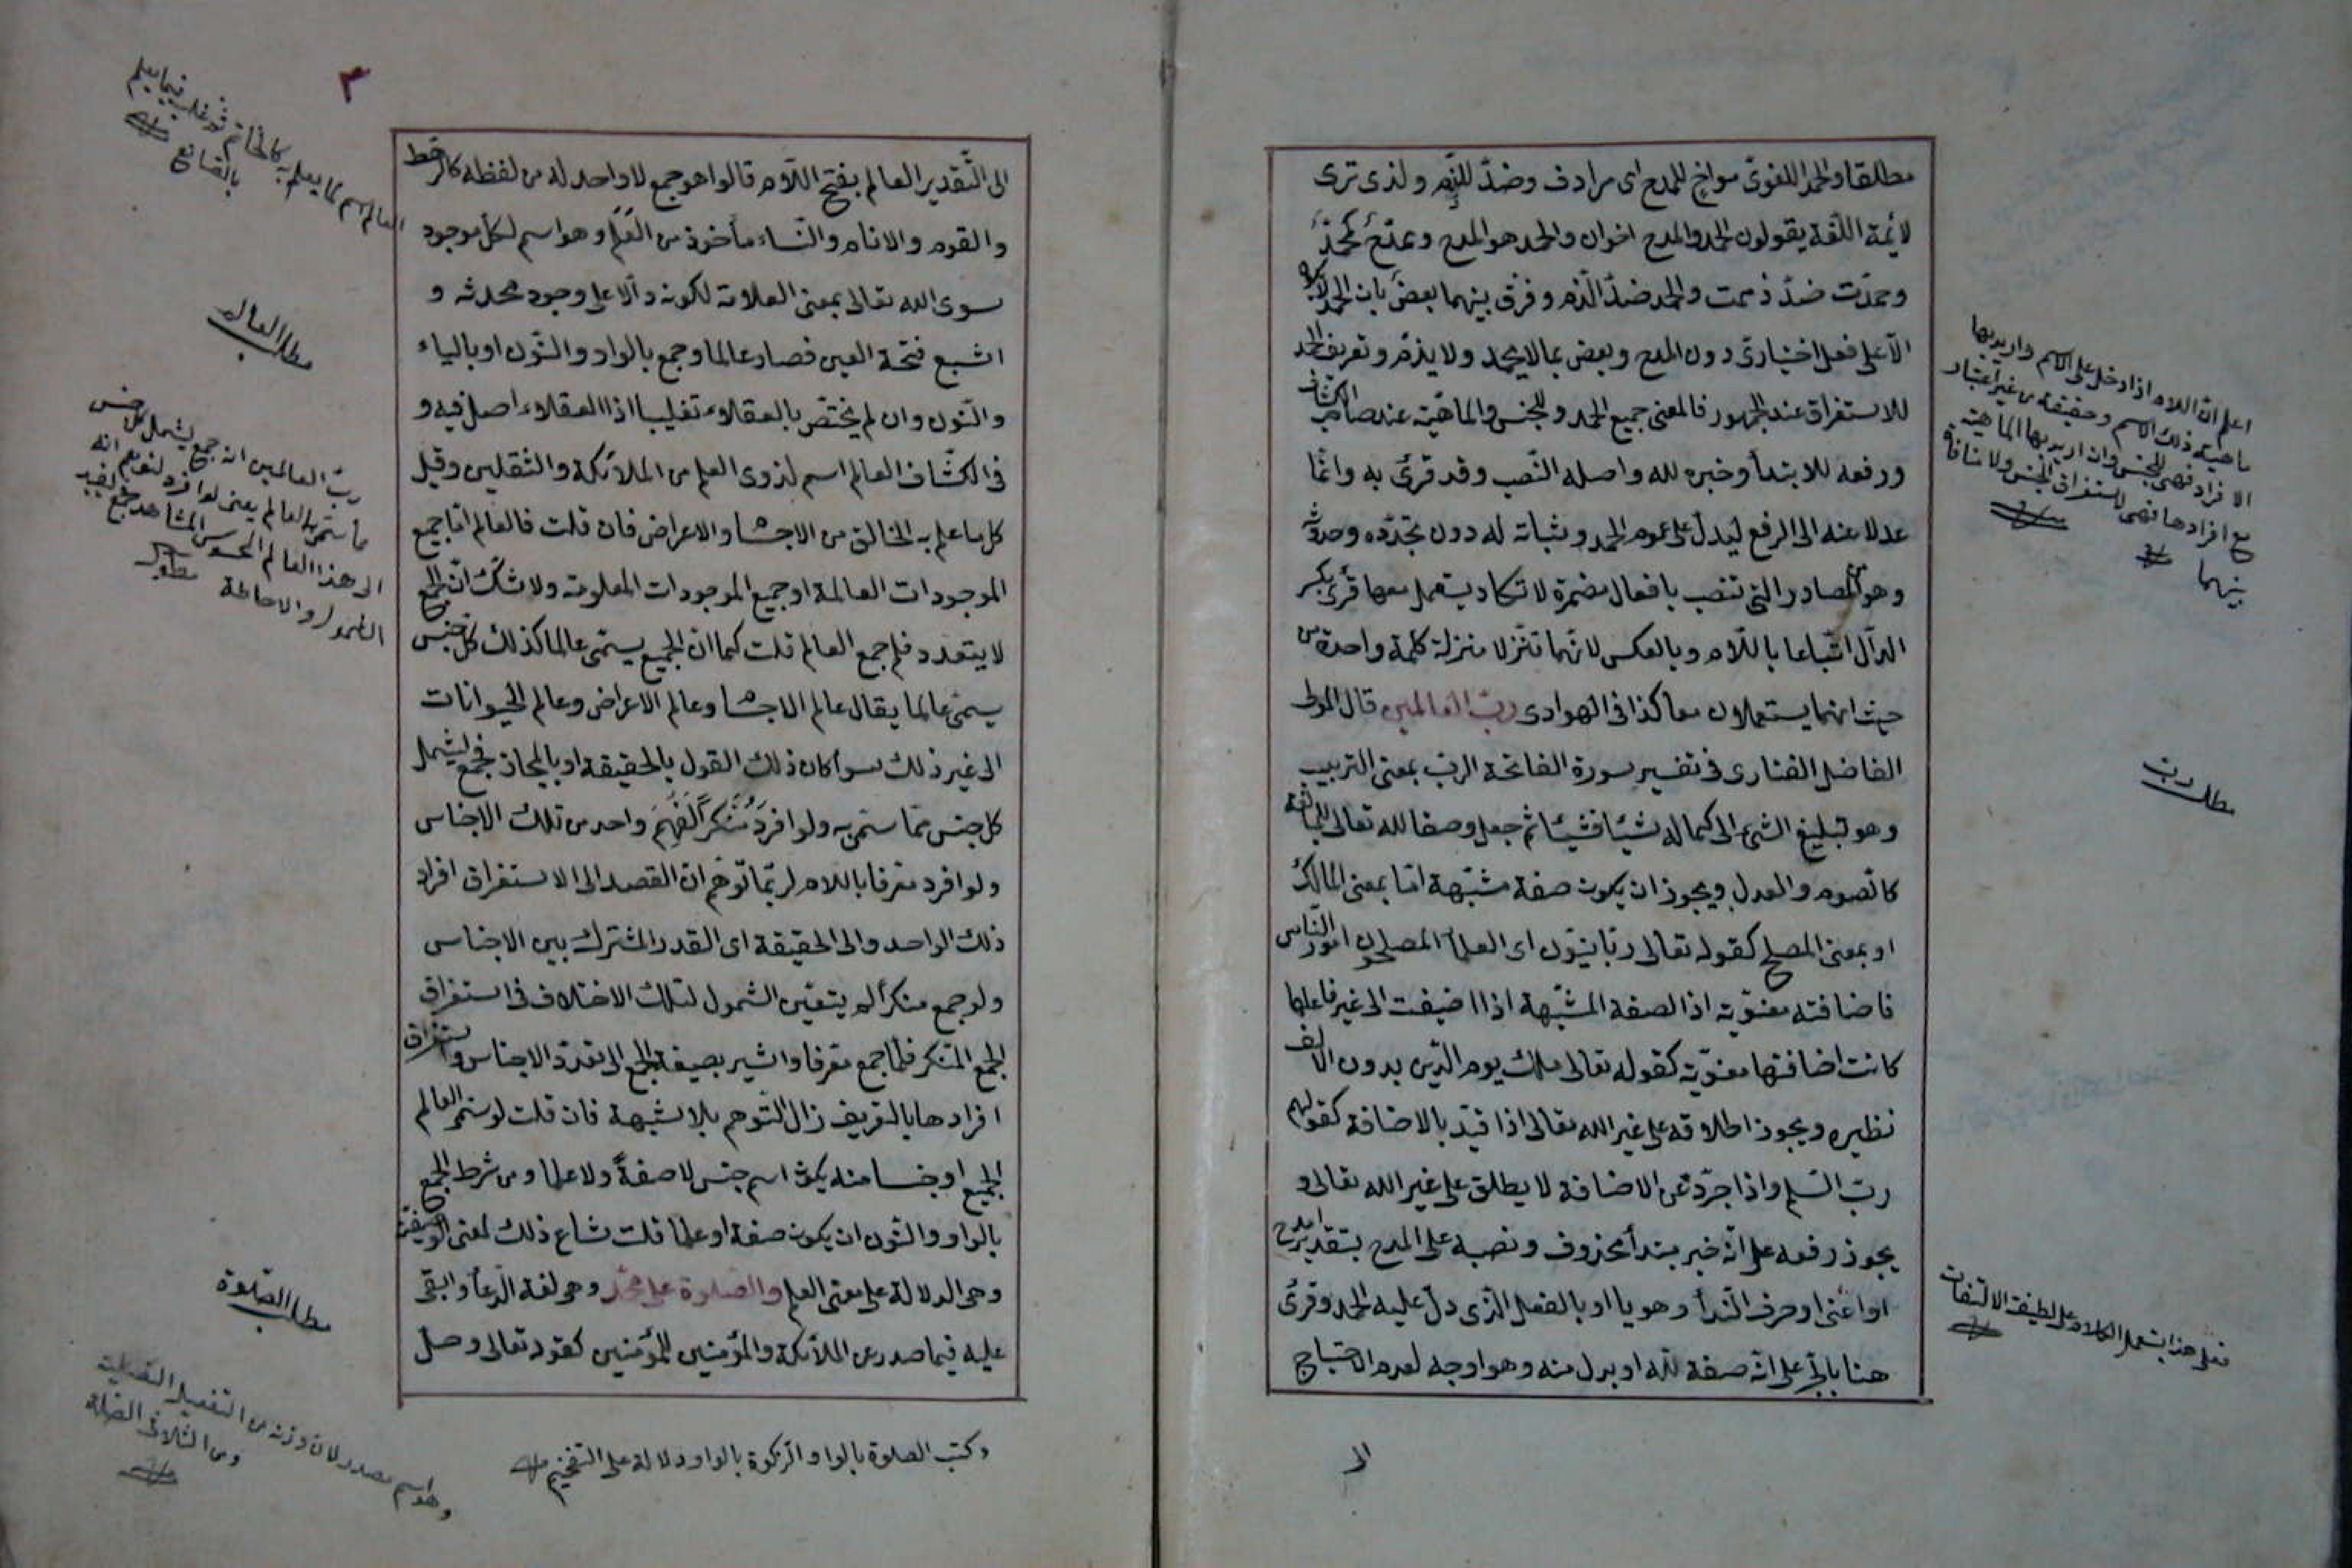 مطلقا والحمد اللغوىّ مواخ للمدح اى مرادف وضدّ للذّم ولذى ترى
لائمة اللّغة يقولون الحمد والمدح اخوان والحمد هو المدح
وحمدت ضدّ ذممت والحمد ضدّ الّذم وفرق بينهما بعض بان الحمد
الّا على فعل اختيارىّ دون المدح وبعض بمالا يحمد ولا يذمّ وتعريف الحمد
للاستغراق عند الجمهور فالمعنى جميع الحمد وللجنس والماهيّة عند صاحب الكشّاف
ورفعه للابتدأ وخبره لله واصله النّصب وقد قرئ به وانّما
عدلا عنه الى الرفع ليدل على عموم الحمد وثباته له دون تجدّده وحدوثه
وهو من المصادر التى تنصب بافعال مضمرة لا تكاد يستعمل معها قرئ بكسر
الدّال اتّباعا باللّام وبالعكس لانّهما تنّزلا منزلة كلمة واحدة من
حيث انهما يستعملان معا كذا فى الهوادى ربّ العالمين قال المولى
الفاضل الفنارى فى تفسير سورة الفاتحة الربّ بمعنى التربيب
وهو تبليغ الشئ الى كماله شيئا فشيئا ثم جعل وصفا لله تعالى للمبالغة
كالصوم والعدل ويجوز ان يكون صفة مشبّهة امّا بمعنى المالك
او بمعنى المصلح كقوله تعالى ربّانيّون اى العلمأ المصلحون امور النّاس
فاضافته معنويّة اذ الصفة المشبّهة اذا اضيفت الى غير فاعلها
كانت اضافتها معنويّة كقوله تعالى ملك يوم الدّين بدون الالف
نظيره ويجوز اطلاقه على غير الله تعالى اذا قيّد بالاضافة كقولهم
ربّ السّلم واذا جرّد عن الاضافة لا يطلق على غير الله تعالى و
يجوز رفعه على انّه خبر مبتدأ محذوف ونصبه على المدح بتقدير امدح
او اعنى او حرف النّدأ وهو يا او بالفعل الّذى دلّ عليه الحمد وقرئ
هنا بالجرّ على انّه صفة لله او بدل منه وهو اوجه لعدم الاحتياج
الى
اعلم انّ اللام اذا دخل على الاسم واريد بها
ماهية ذلك الاسم وحقيقة من غير اعتبار
الافراد فهى للجنس وان اريد بها الماهية
مع افرادها فهى لاستغراق الجنس ولا منافاة
بينهما
مطلب ربّ
فعلى هذا يشتمل الكلام على لطيفة الالتفات
٣
الى التّقدير العالم بفتح اللّام قالوا هو جمع لا واحد له من لفظه كالرّهط
والقوم والانام والنّساء مأخوذ من العَلَم وهو اسم لكلّ موجود
سوى الله تعالى بمعنى العلامة لكونه دالّا على وجود محدثه و
اشبع فتحة العين فصار عالما وجمع بالواو والنّون او بالياء
والنّون وان لم يختصّ بالعقلاء تغليبا اذا العقلاء اصل فيه و
فى الكشّاف العالم اسم لذوى العلم من الملائكة والثقلين وقيل
كل ما علم به الخالق من الاجسام والاعراض فان قلت فالعالم امّا جميع
الموجودات العالمة او جميع الموجودات المعلومة ولا شكّ انّ الجميع
لا يتعدد فلم جمع العالم قلت كما انّ الجميع يسمّى عالما كذلك كلّ جنس
يسمّى عالما يقال عالم الاجسام وعالم الاعراض وعالم الحيوانات
الى غير ذلك سوأ كان ذلك القول بالحقيقة او بالمجاز فجمع ليشمل
كل جنس ممّا سمّى به ولو افرد منكّرا لفهم واحد من تلك الاجناس
ولو افرد معرفا باللام لربّما توّهم ان القصد الى الاستغراق افراد
ذلك الواحد والى الحقيقة اى القدر المشترك بين الاجناس
ولو جمع منكرا لم يتعيّن الشمول لتلك الاختلاف فى استغراق
الجمع المنّكر فلّما جمع معرفا واشير بصيغة الجمع الى تعدّد الاجناس واستغراق
افرادها بالتعريف زال التّوهم بلا شبهة فان قلت لو سمّى العالم
الجميع او جنسا منه يكون اسم جنس لا صفةً ولا علما ومن شرط الجمع
بالواو والنّون ان يكون صفة او علما قلت شاع ذلك لمعنى الوصفيّة
وهى الدلالة على معنى العلم والصلوة على محمّد وهى لغة الدّعأ
عليه فيما صدر عن الملائكة والمؤمنين للمؤمنين كقوله تعالى وصلّ
العالم اسم لما يعلم به كالخاتم ثم غلب فيما يعلم
به الصانع
مطلب العالم
ربّ العالمين انه جمع ليشمل كل جنس
ممّا سمّى بالعالم يعنى لو افرد لتوهم انه
الى هذا العالم المحسوس المشاهد فجمع ليفيد
الشمول والاحاطة مطول
مطلب الصّلوة
وهو اسم مصدر لان وزنه من التفعيل التصلية
ومن الثلاثى الصلة
وكتب الصلوة بالواو والزكوة بالواو دلالة على التفخيم